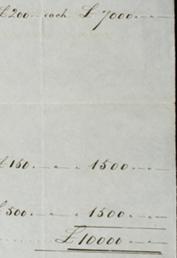 £200 each £7000
£150 " 1500
£500 " 1500
£10000